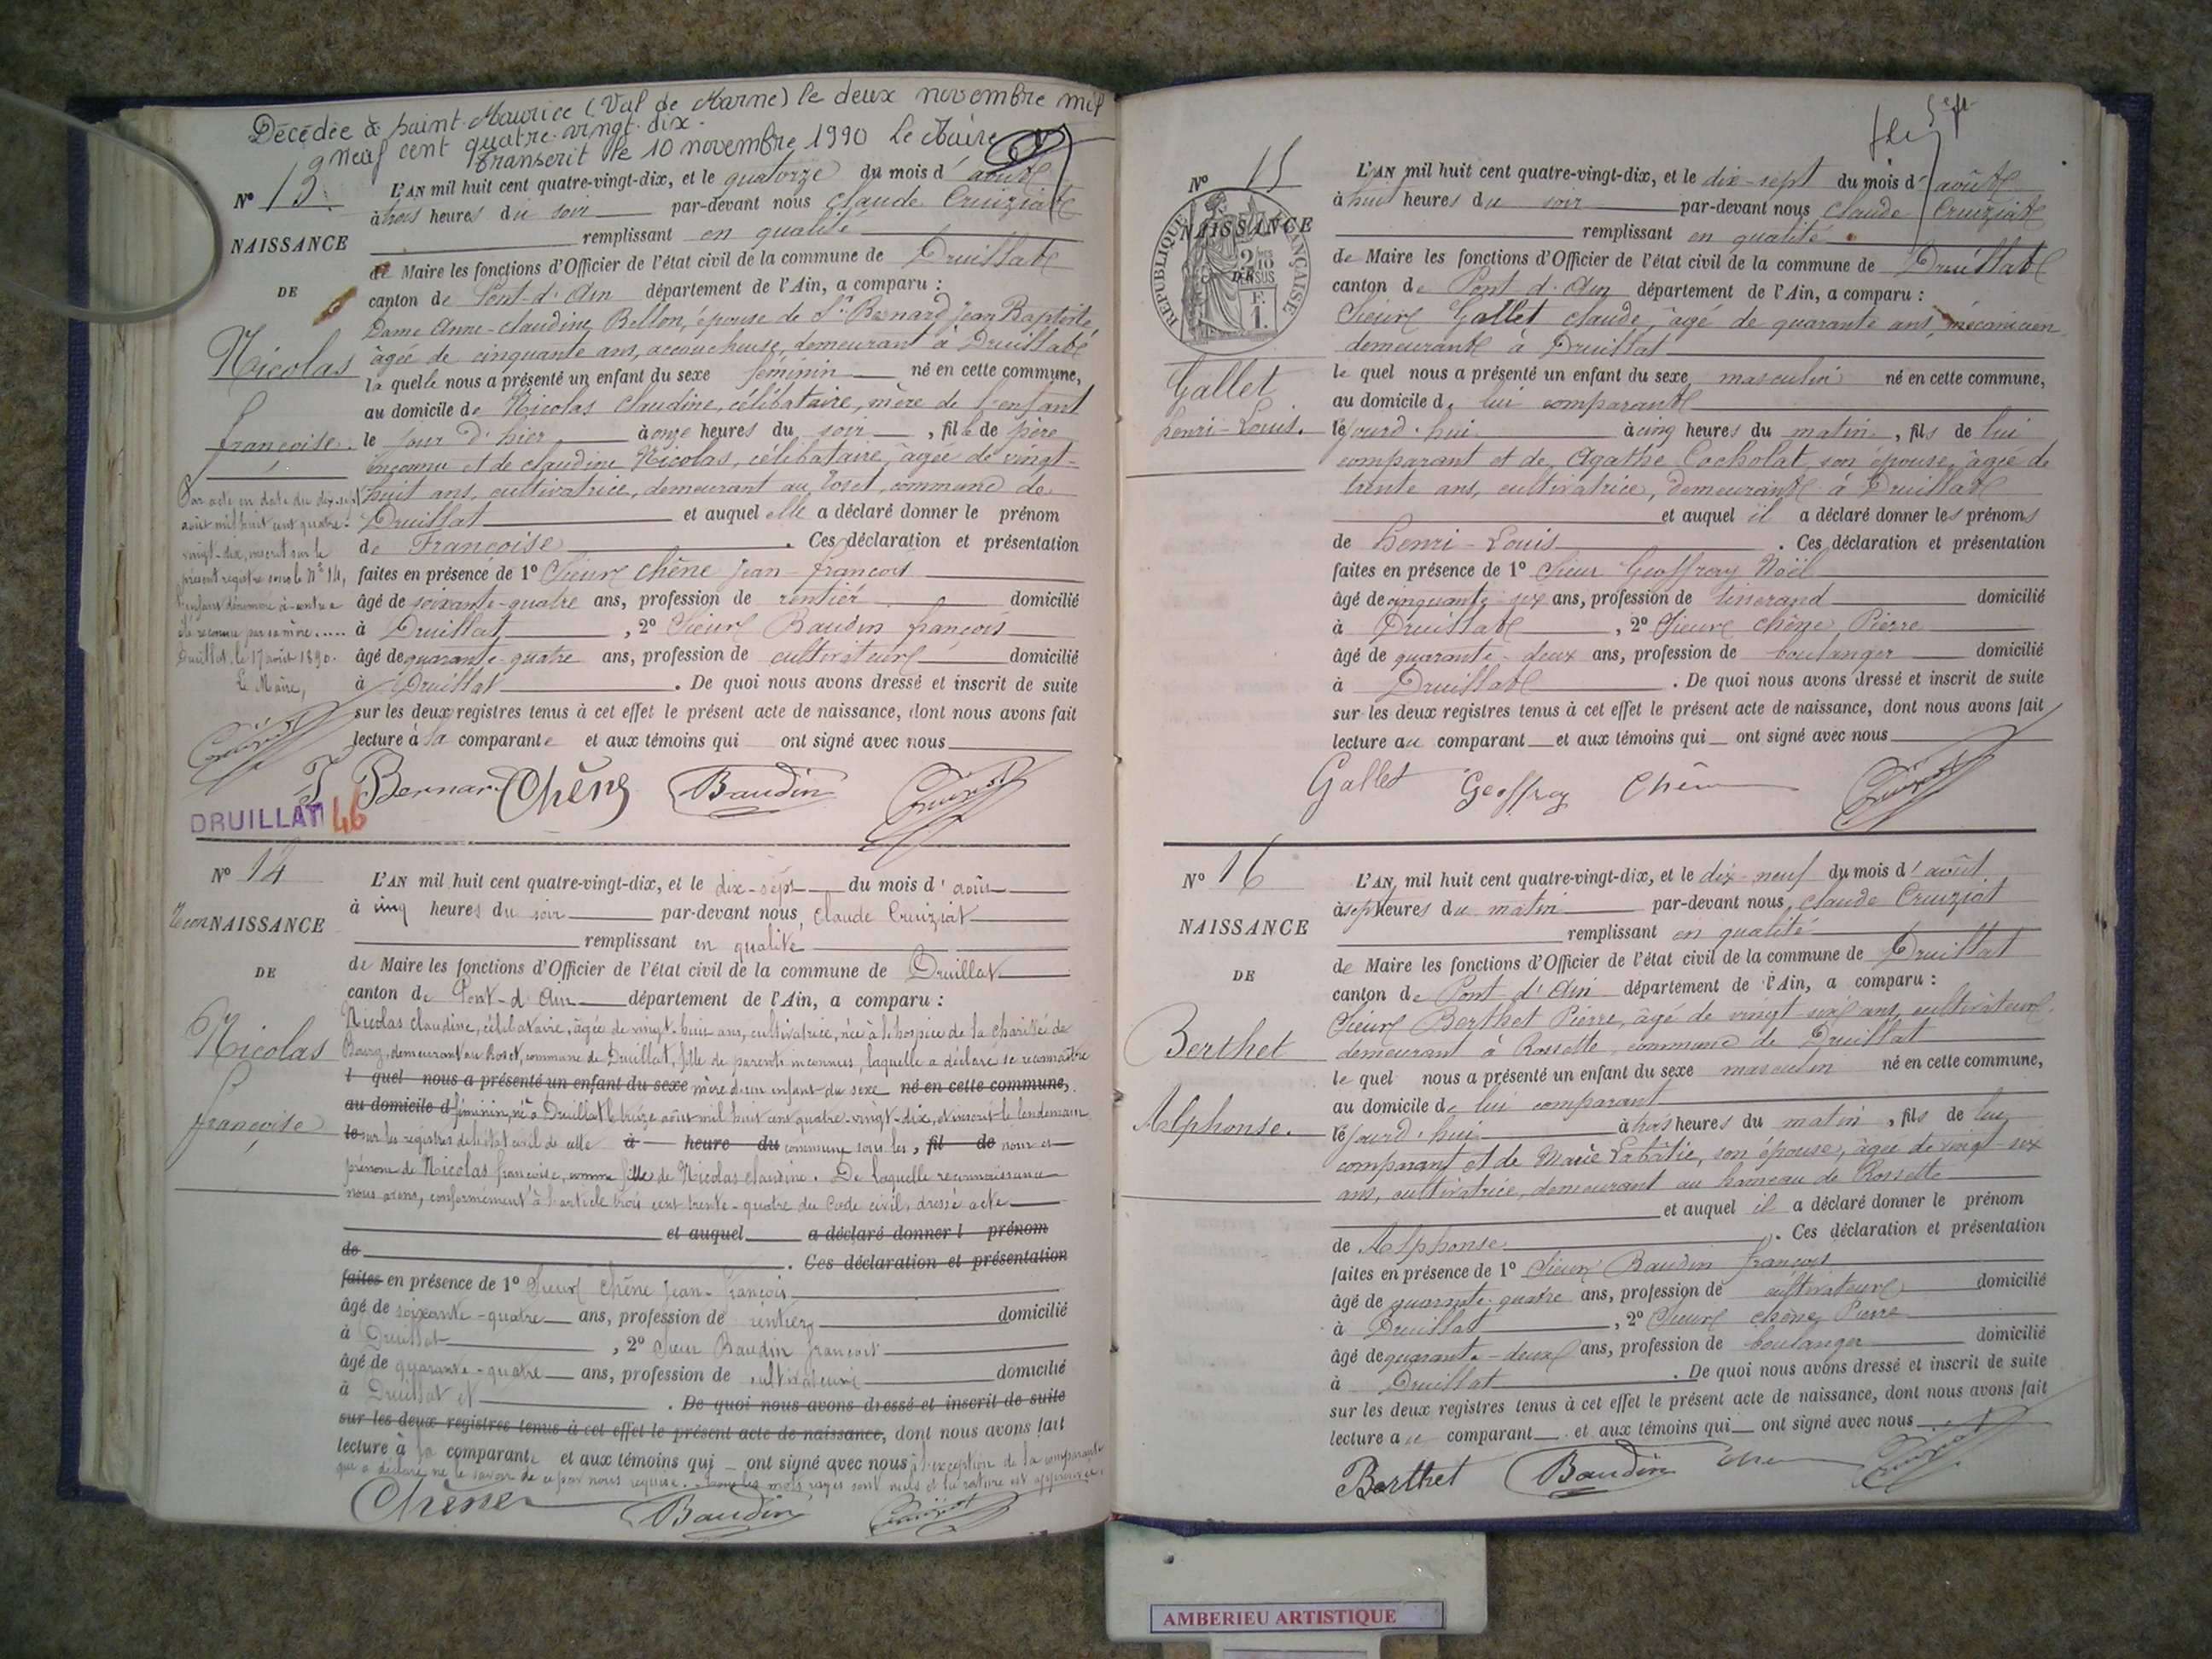 Décédée à Saint-Maurice (Val de Marne) le deux novembre mil
neuf cent quatre-vingt-dix.
Transcrit le 10 novembre 1990 Le Maire
N° 13.
NAISSANCE
DE
Nicolas
françoise.
Par acte en date du dix-sept
août mil huit cent quatre-
vingt-dix, inscrit sur le
présent registre sous le N° 14,
l'enfant dénommé ci-contre
été reconnu par sa mère.....
Druillat, le 17 août 1890.
Le Maire,
L'AN mil huit cent quatre-vingt-dix, et le quatorze du mois d'août
à trois heures du soir par-devant nous Claude Cruiziat
remplissant en qualité
de Maire les fonctions d'Officier de l'état civil de la commune de Druillat
canton de Pont-d'Ain département de l'Ain, a comparu :
Dame Anne-Claudine Bellon, épouse de Sr. Bernard Jean Baptiste,
âgée de cinquante ans, accoucheuse, demeurant à Druillat
la quelle nous a présenté un enfant du sexe féminin né en cette commune,
au domicile de Nicolas Claudine, célibataire, mère de l'enfant
le jour d'hier à onze heures du soir, fille de père
inconnu et de Claudine Nicolas, célibataire, âgée de vingt-
huit ans, cultivatrice, demeurant au Roset, commune de
Druillat et auquel elle a déclaré donner le prénom
de Françoise. Ces déclaration et présentation
faites en présence de 1° Sieur Chêne Jean-françois
âgé de soixante-quatre ans, profession de rentier domicilié
à Druillat, 2° Sieur Baudin françois
âgé de quarante-quatre ans, profession de cultivateur domicilié
à Druillat. De quoi nous avons dressé et inscrit de suite
sur les deux registres tenus à cet effet le présent acte de naissance, dont nous avons fait
lecture à la comparante et aux témoins qui ont signé avec nous
Bernard Chêne Baudin Cruiziat
DRUILLAT 46
N° 14
ReconNAISSANCE
DE
Nicolas
françoise
L'AN mil huit cent quatre-vingt-dix, et le dix-sept du mois d'août
à cinq heures du soir par-devant nous, Claude Cruiziat
remplissant en qualité
de Maire les fonctions d'Officier de l'état civil de la commune de Druillat
canton de Pont-d'Ain département de l'Ain, a comparu :
Nicolas Claudine, célibataire, âgée de vingt-huit ans, cultivatrice, née à l'hospice de la charité de
Bourg, demeurant au Roset, commune de Druillat, fille de parents inconnus, laquelle a déclaré se reconnaître
l quel nous a présenté un enfant du sexe mère d'un enfant du sexe né en cette commune,
au domicile d féminin, né à Druillat le treize août mil huit cent quatre-vingt-dix, et inscrit le lendemain
le sur les registres de l'état civil de cette à heure du commune sous les, fil de nom et
prénom de Nicolas françoise, comme fille de Nicolas Claudine. De laquelle reconnaissance
nous avons, conformément à l'article trois cent trente-quatre du Code civil, dressé acte
et auquel a déclaré donner l prénom
de . Ces déclaration et présentation
faites en présence de 1° Sieur Chêne Jean-françois
âgé de soixante-quatre ans, profession de rentier domicilié
à Druillat, 2° Sieur Baudin françois
âgé de quarante-quatre ans, profession de cultivateur domicilié
à Druillat et . De quoi nous avons dressé et inscrit de suite
sur les deux registres tenus à cet effet le présent acte de naissance, dont nous avons fait
lecture à la comparante et aux témoins qui ont signé avec nous à l'exception de la comparante
qui a déclaré ne le savoir de ce par nous requise. Tous les mots rayés sont nuls et la rature est approuvée.
Chêne Baudin Cruiziat
N° 15
NAISSANCE
DE
RÉPUBLIQUE FRANÇAISE
Gallet
henri-Louis.
L'AN mil huit cent quatre-vingt-dix, et le dix-sept du mois d'août
à huit heures du soir par-devant nous Claude Cruiziat
remplissant en qualité
de Maire les fonctions d'Officier de l'état civil de la commune de Druillat
canton de Pont d'Ain département de l'Ain, a comparu :
Sieur Gallet Claude, âgé de quarante ans, mécanicien
demeurant à Druillat
le quel nous a présenté un enfant du sexe masculin né en cette commune,
au domicile de lui comparant
lejourd'hui à cinq heures du matin, fils de lui
comparant et de Agathe Cocholat, son épouse, âgée de
trente ans, cultivatrice, demeurant à Druillat
et auquel il a déclaré donner les prénoms
de henri-Louis. Ces déclaration et présentation
faites en présence de 1° Sieur Geoffray Noël
âgé de cinquante six ans, profession de tisserand domicilié
à Druillat, 2° Sieur Chêne Pierre
âgé de quarante-deux ans, profession de boulanger domicilié
à Druillat. De quoi nous avons dressé et inscrit de suite
sur les deux registres tenus à cet effet le présent acte de naissance, dont nous avons fait
lecture au comparant et aux témoins qui ont signé avec nous
Gallet Geoffray Chêne Cruiziat
N° 16
NAISSANCE
DE
Berthet
Alphonse.
L'AN mil huit cent quatre-vingt-dix, et le dix-neuf du mois d'août
à sept heures du matin par-devant nous, Claude Cruiziat
remplissant en qualité
de Maire les fonctions d'Officier de l'état civil de la commune de Druillat
canton de Pont d'Ain département de l'Ain, a comparu :
Sieur Berthet Pierre, âgé de vingt-six ans, cultivateur,
demeurant à Rossette, commune de Druillat
le quel nous a présenté un enfant du sexe masculin né en cette commune,
au domicile de lui comparant
lejourd'hui à trois heures du matin, fils de lui
comparant et de Marie Labatie, son épouse, âgée de vingt-six
ans, cultivatrice, demeurant au hameau de Rossette
et auquel il a déclaré donner le prénom
de Alphonse. Ces déclaration et présentation
faites en présence de 1° Sieur Baudin françois
âgé de quarante-quatre ans, profession de cultivateur domicilié
à Druillat, 2° Sieur Chêne Pierre
âgé de quarante-deux ans, profession de boulanger domicilié
à Druillat. De quoi nous avons dressé et inscrit de suite
sur les deux registres tenus à cet effet le présent acte de naissance, dont nous avons fait
lecture au comparant et aux témoins qui ont signé avec nous
Berthet Baudin Chêne Cruiziat
AMBERIEU ARTISTIQUE